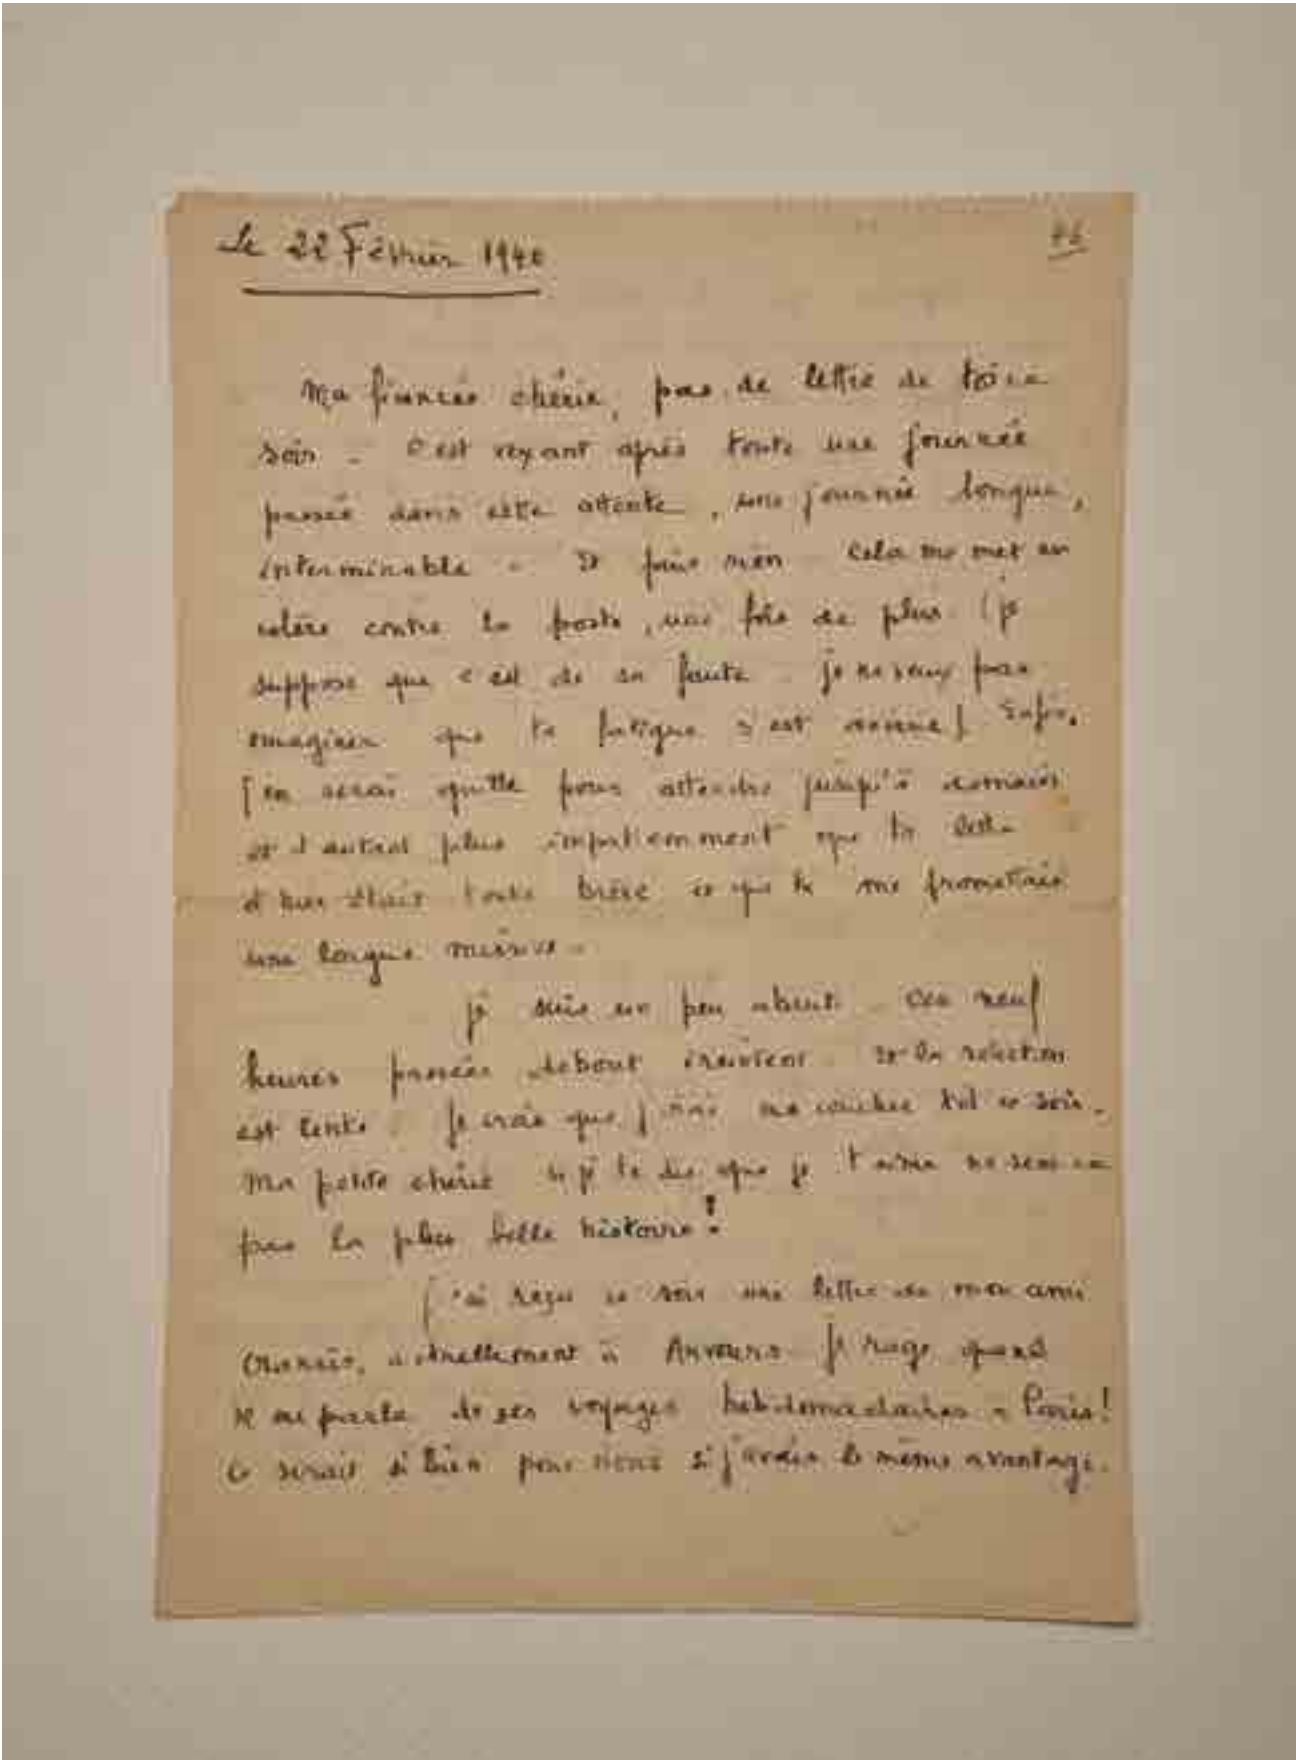 Le 22 Février 1940
Ma fiancée chérie, pas de lettre de toi ce
soir - C'est vexant après toute une journée
passée dans cette attente, une journée longue,
interminable - Et puis rien - Cela me met en
colère contre la poste, une fois de plus (je
suppose que c'est de sa faute - je ne veux pas
imaginer que ta fatigue s'est ) Enfin,
j'en serai quitte pour attendre jusqu'à demain
et d'autant plus impatiemment que ta lettre
d'hier était toute brève et que tu me promettais
une longue missive -
Je suis un peu abruti - Ces neuf
heures passées debout éreintent - Et la réaction
est lente - Je crois que j'irai me coucher tôt ce soir -
Ma petite chérie si je te dis que je t'aime ne sera ce
pas la plus belle histoire !
J'ai reçu ce soir une lettre de mon ami
actuellement à - Je rage quand
il me parle de ses voyages hebdomadaires à Paris !
Ce serait si bien pour nous si j'avais le même avantage.